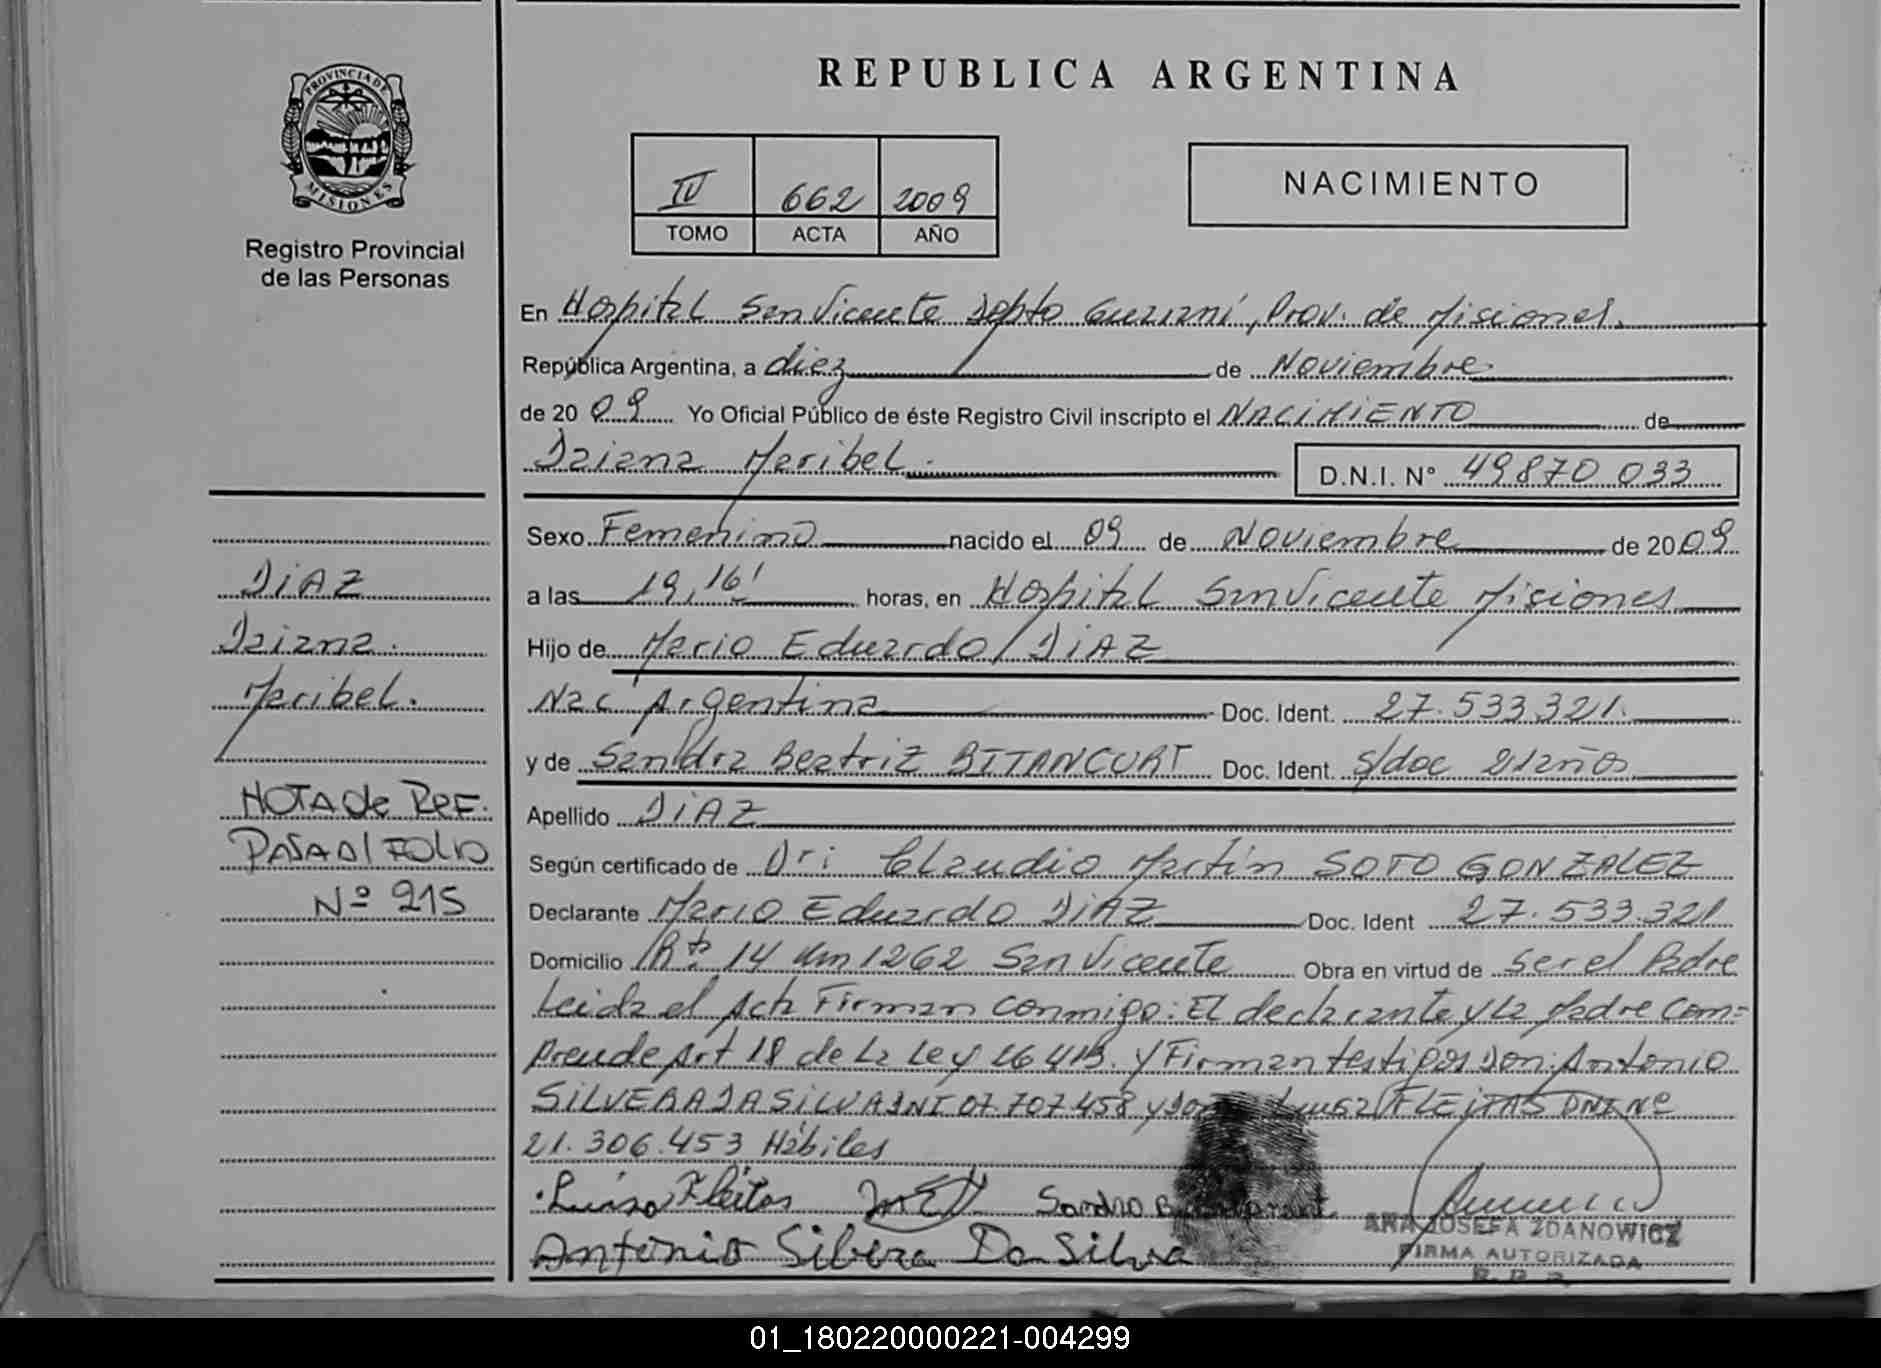 PROVINCIA DE
MISIONES
Registro Provincial
de las Personas
REPUBLICA ARGENTINA
IV 662 2009
TOMO ACTA AÑO
NACIMIENTO
En Hospital San Vicente Depto Guaraní, Prov. de Misiones.
República Argentina, a diez de Noviembre
de 20 09 Yo Oficial Público de éste Registro Civil inscripto el NACIMIENTO de
Daiana Maribel.
D.N.I. N° 49870 033
Sexo Femenino nacido el 09 de Noviembre de 20 09
a las 19,16' horas, en Hospital San Vicente Misiones
Hijo de Mario Eduardo DIAZ
Nac Argentina Doc. Ident. 27.533.321.
y de Sandra Beatriz BITANCURT Doc. Ident. S/doc 21 años
Apellido DIAZ
Según certificado de Dr: Claudio Martin SOTO GONZALEZ
Declarante Mario Eduardo DIAZ Doc. Ident 27.533.321
Domicilio Rta 14 Km 1262 San Vicente Obra en virtud de ser el Padre
Leida el Acta Firman conmigo: El declarante y la Madre Com-
prende Art 18 de La Ley 26 413. y Firman testigos Don: Antonio
SILVERA DA SILVA DNI 07.707.458 y FLEITAS DNI Nº
21.306.453 Hábiles
Luisa Fleitas Sandro
Antonio Silvera Da Silva
ANA JOSEFA ZDANOWICZ
FIRMA AUTORIZADA
DIAZ
Daiana.
Maribel.
NOTA de REF.
PASA Al FOLIO
Nº 215
01_180220000221-004299